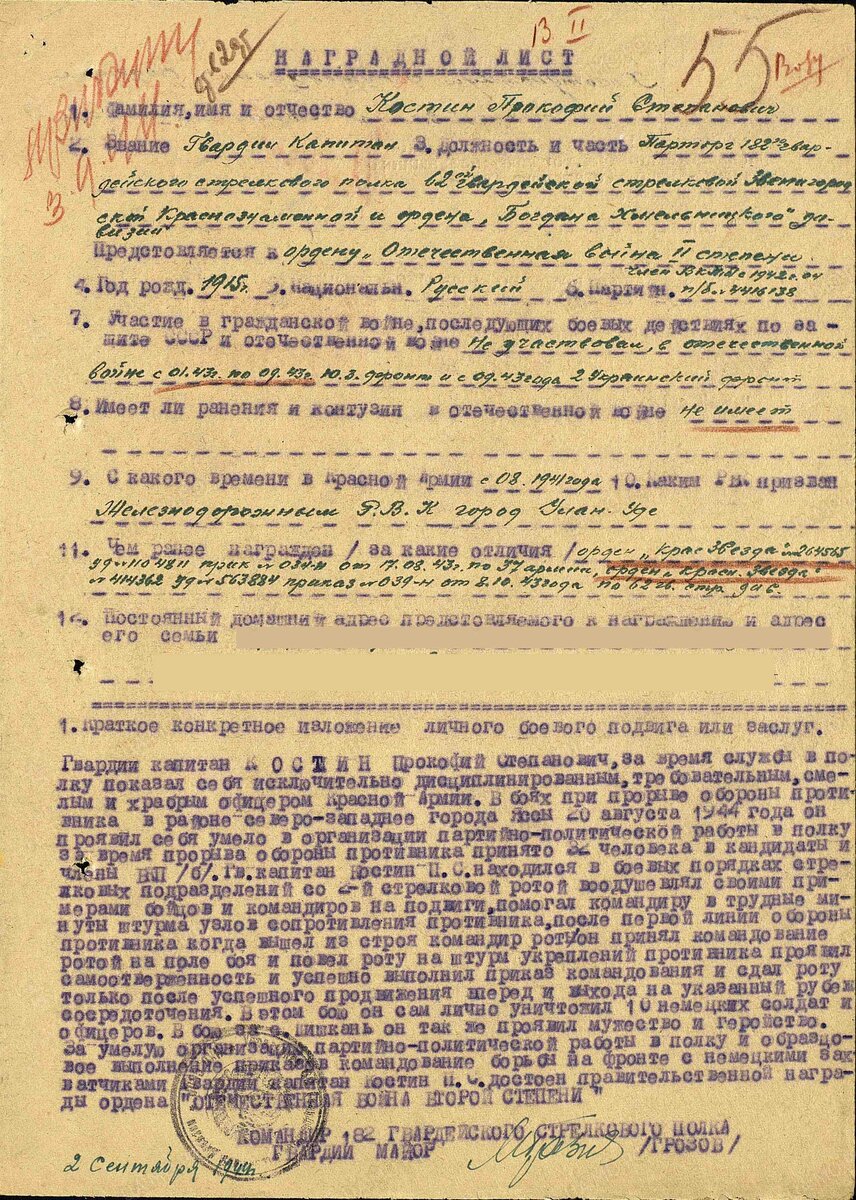 13 II
55
НАГРАДНОЙ ЛИСТ
1. Фамилия,имя и отчество Костин Прокофий Степанович
2. Звание Гвардии Капитан 3. Должность и часть Парторг 182го гвар-
дейского стрелкового полка 62ой гвардейской стрелковой Звенигород
ской Краснознаменной и ордена „Богдана Хмельницкого" ди-
визии
Представляется к ордену „Отечественная война II степени
4. Год рожд. 1915г. 5. Национальн. Русский 6. Партийн. член ВКП(б) с 1942г.
п/б № 4416138
7. Участие в гражданской войне,последующих боевых действиях по за -
щите СССР и отечественной войне Не участвовал, в отечественной
войне с 01.43г. по 09.43г Ю.З. фронт и с 09.43 года 2 Украинский фронт
8. Имеет ли ранения и контузии в отечественной войне не имеет
9. С какого времени в Красной Армии с 08.1941 года 10. Каким РВК призван
Железнодорожным Р.В.К город Улан-Удэ
11. Чем ранее награжден / за какие отличия / орден „Крас Звезда" № 264565
уд № 104811 прик № 034-н от 17.08.43г. по 37 армии, орден „красн. Звезда"
№ 414362 уд № 563884 приказ № 039-н от 8.10.43 года по 62 гв. стр. див.
12. Постоянный домашний адрес представляемого к награждению и адрес
его семьи
1. Краткое конкретное изложение личного боевого подвига или заслуг.
Гвардии капитан КОСТИН Прокофий Степанович,за время службы в по-
лку показал себя исключительно дисциплинированным,требовательным,сме-
лым и храбрым офицером Красной Армии. В боях при прорыве обороны проти-
вника в районе северо-западнее города Яссы 20 августа 1944 года он
проявил себя умело в организации партийно-политической работы в полку
за время прорыва обороны противника принято 32 человека в кандидаты и
члены ВКП /б/. Гв.капитан Костин П.С.находился в боевых порядках стре-
лковых подразделений со 2-й стрелковой ротой воодушевлял своими при-
мерами бойцов и командиров на подвиги,помогал командиру в трудные ми-
нуты штурма узлов сопротивления противника,после первой линии обороны
противника когда вышел из строя командир роты/он принял командование
ротой на поле боя и повел роту на штурм укреплений противника проявил
самоотверженность и успешно выполнил приказ командования и сдал роту
только после успешного продвижения вперед и выхода на указанный рубеж
сосредоточения. В этом бою он сам лично уничтожил 10 немецких солдат и
офицеров. В бою за с. Шишкань он так же проявил мужество и геройство.
За умелую организацию партийно-политической работы в полку и образцо-
вое выполнение приказов командование борьбы на фронте с немецкими зах-
ватчиками гвардии капитан Костин П.С.достоен правительственной награ-
ды ордена "ОТЕЧЕСТВЕННАЯ ВОЙНА ВТОРОЙ СТЕПЕНИ"
КОМАНДИР 182 ГВАРДЕЙСКОГО СТРЕЛКОВОГО ПОЛКА
ГВАРДИИ МАЙОР /ГРОЗОВ/
2 сентября 1944г.